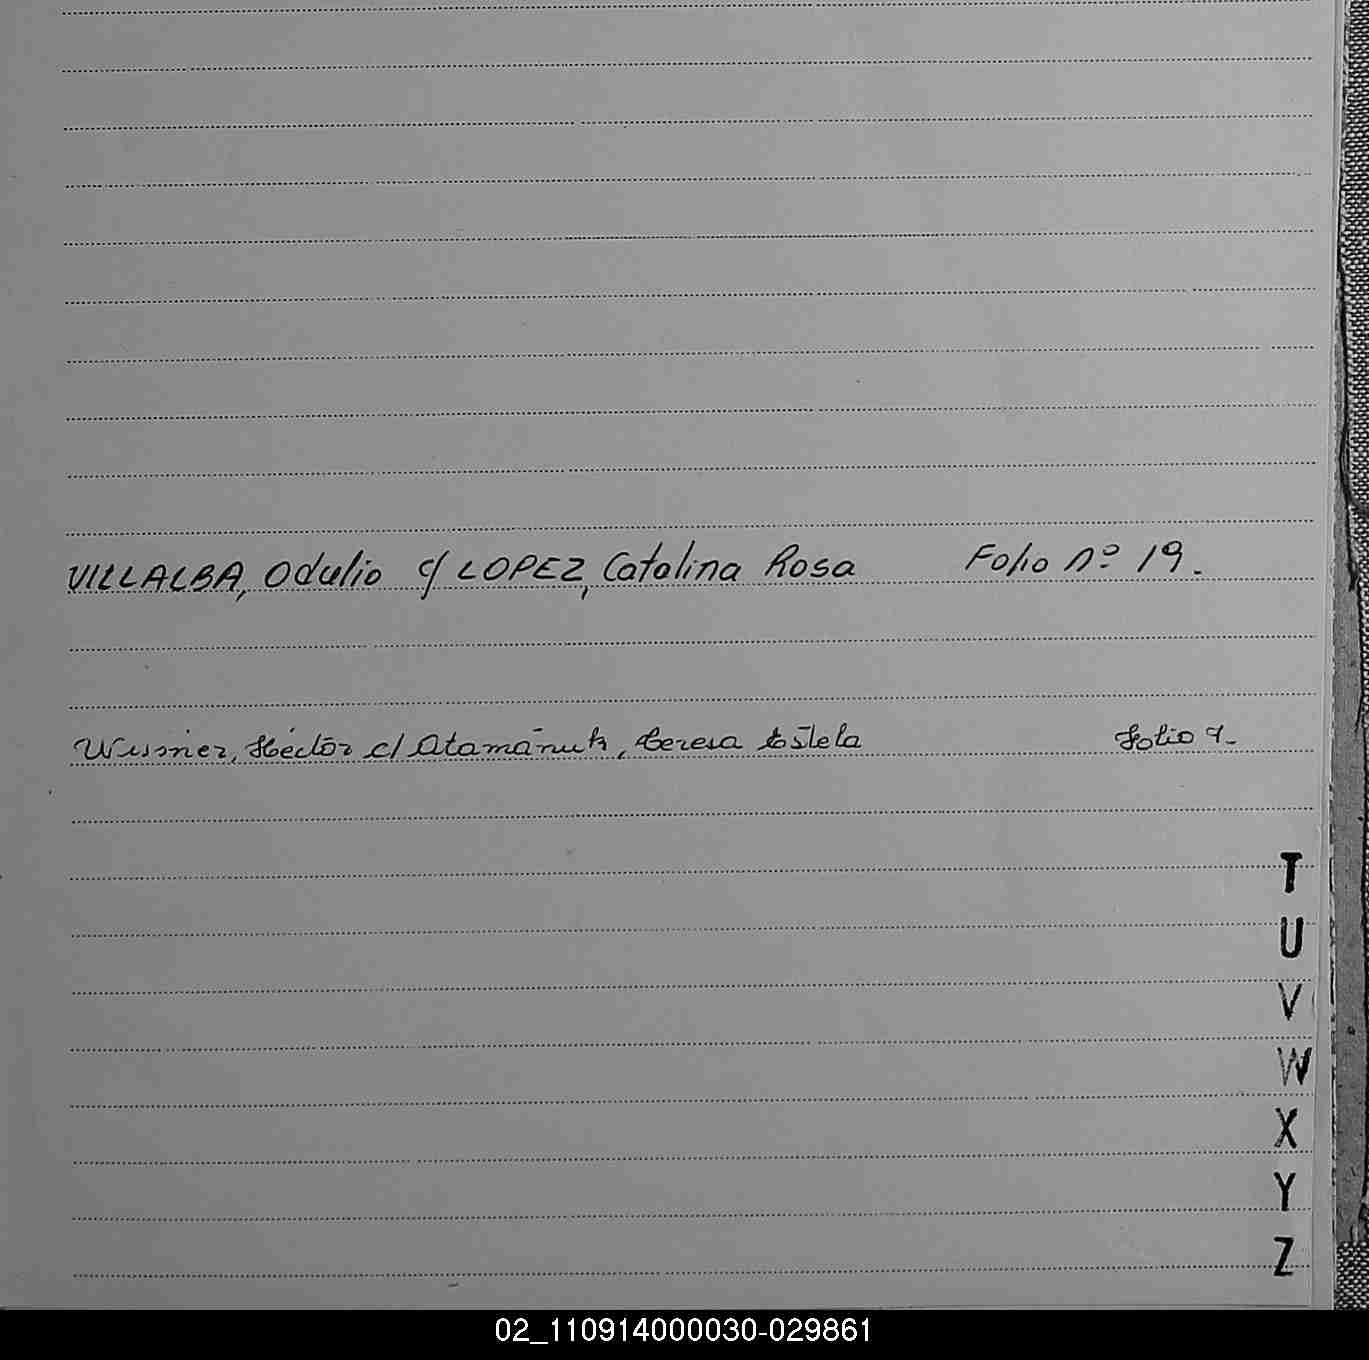 VILLALBA, Odulio c/ LOPEZ, Catalina Rosa Folio nº 19.
Héctor c/ Atamañuk, Teresa Estela Folio
T
U
V
W
X
Y
Z
02_110914000030-029861